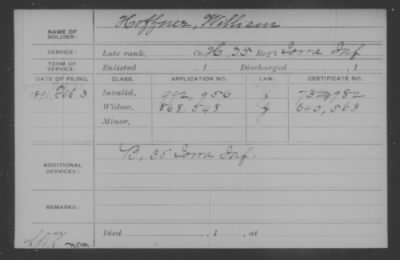 NAME OF SOLDIER: Hoffner, William
SERVICE: Late rank, Co. H, 35 Reg't Iowa Inf
TERM OF SERVICE: Enlisted , 1 Discharged , 1
DATE OF FILING. CLASS. APPLICATION NO. LAW. CERTIFICATE NO.
1891, Feb 3 Invalid, 992,950
Widow, 868,548 640,563
Minor,
ADDITIONAL SERVICES: B, 35 Iowa Inf.
REMARKS:
Died , 1 , at